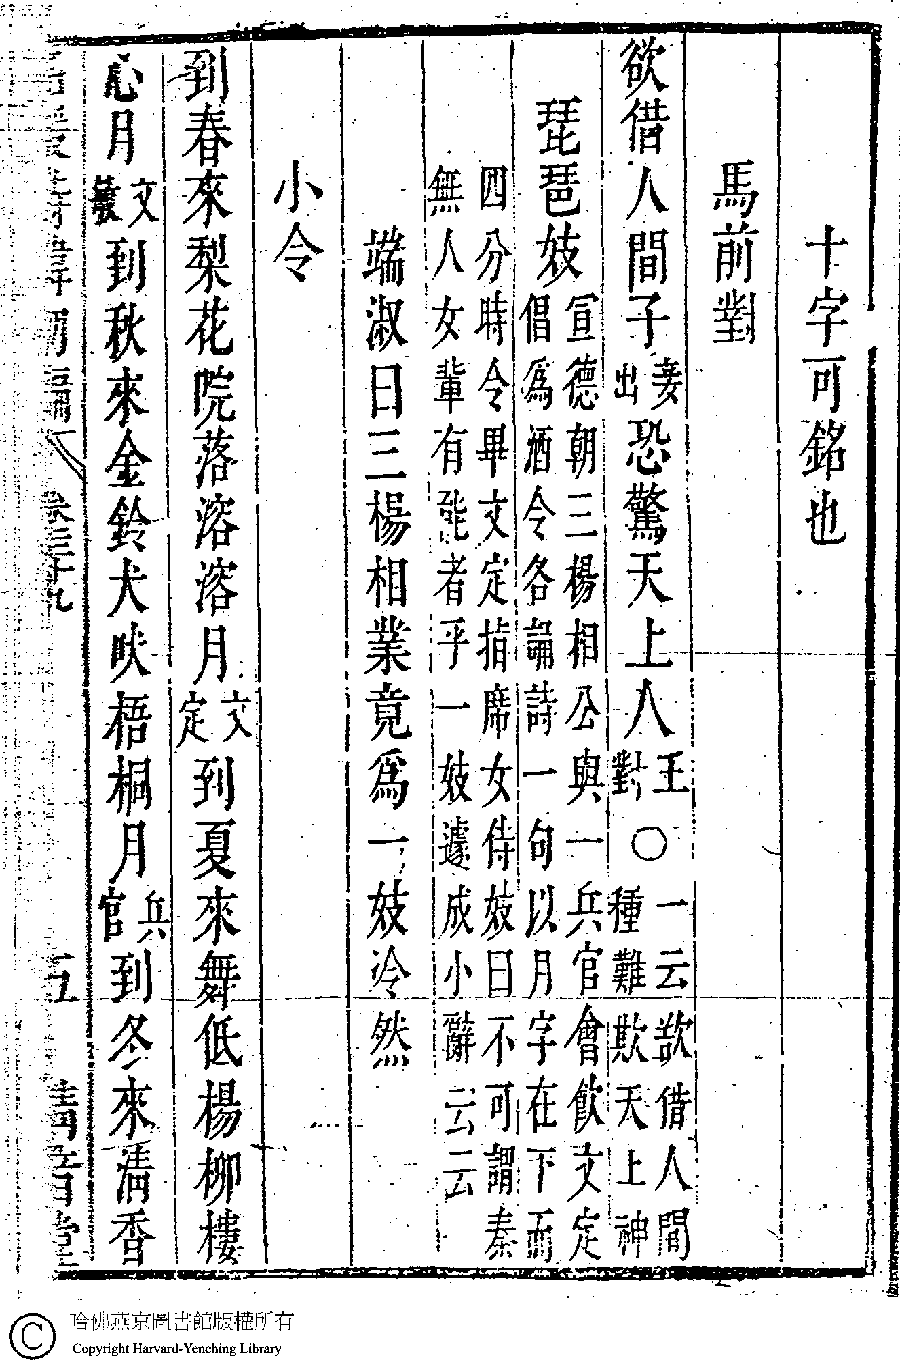 十字可銘也
馬前對
欲借人間子妾出恐驚天上人王對○一云欲借人間種難欺天上神
琵琶妓宣德朝三楊相公與一兵官會飲文定倡爲酒令各誦詩一句以月字在下而
四分時令畢文定指席女侍妓曰不可謂秦無人女輩有能者乎一妓遽成小辭云云
端淑曰三楊相業竟爲一妓冷然
小令
到春來梨花院落溶溶月文定到夏來舞低楊柳樓
心月文到秋來金鈴犬吠梧桐月兵官到冬來清香
名媛詩緯初編 卷三十九 五 清音堂
哈佛燕京圖書館版權所有
Copyright Harvard-Yenching Library